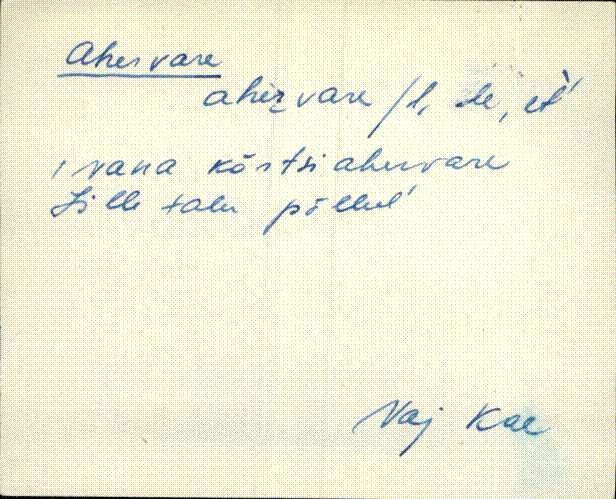 Ahervare
ahervare /l, de, et'
, vana kõrtsiahervare
Lille talu põllul
Vaj Kae